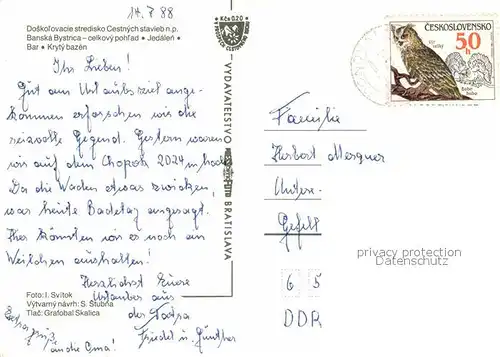 14.7.88
Doškoľovacie stredisko Cestných stavieb n.p.
Banská Bystrica – celkový pohľad • Jedáleň •
Bar • Krytý bazén
Ihr Lieben!
Gut am Urlaubsziel ange-
kommen erforschen wir die
reizvolle Gegend. Gestern waren
wir auf dem Chopok 2024 m hoch
Da die Waden etwas zwicken,
war heute Badetag angesagt.
Hier könnten wir es noch ein
Weilchen aushalten!
Herzlichst Eure
Urlauber aus
der Tatra
Friedel u. Günther
Extragrüße
an die Oma!
Foto: I. Svítok
Výtvarný návrh: S. Štubňa
Tlač: Grafobal Skalica
Kčs 0,20
VYDAVATEĽSTVO
BRATISLAVA
ČESKOSLOVENSKO
50 h
Výr
Bubo
bubo
Familie
Herbert
Untere-
privacy protection
Datenschutz
6 5
DDR